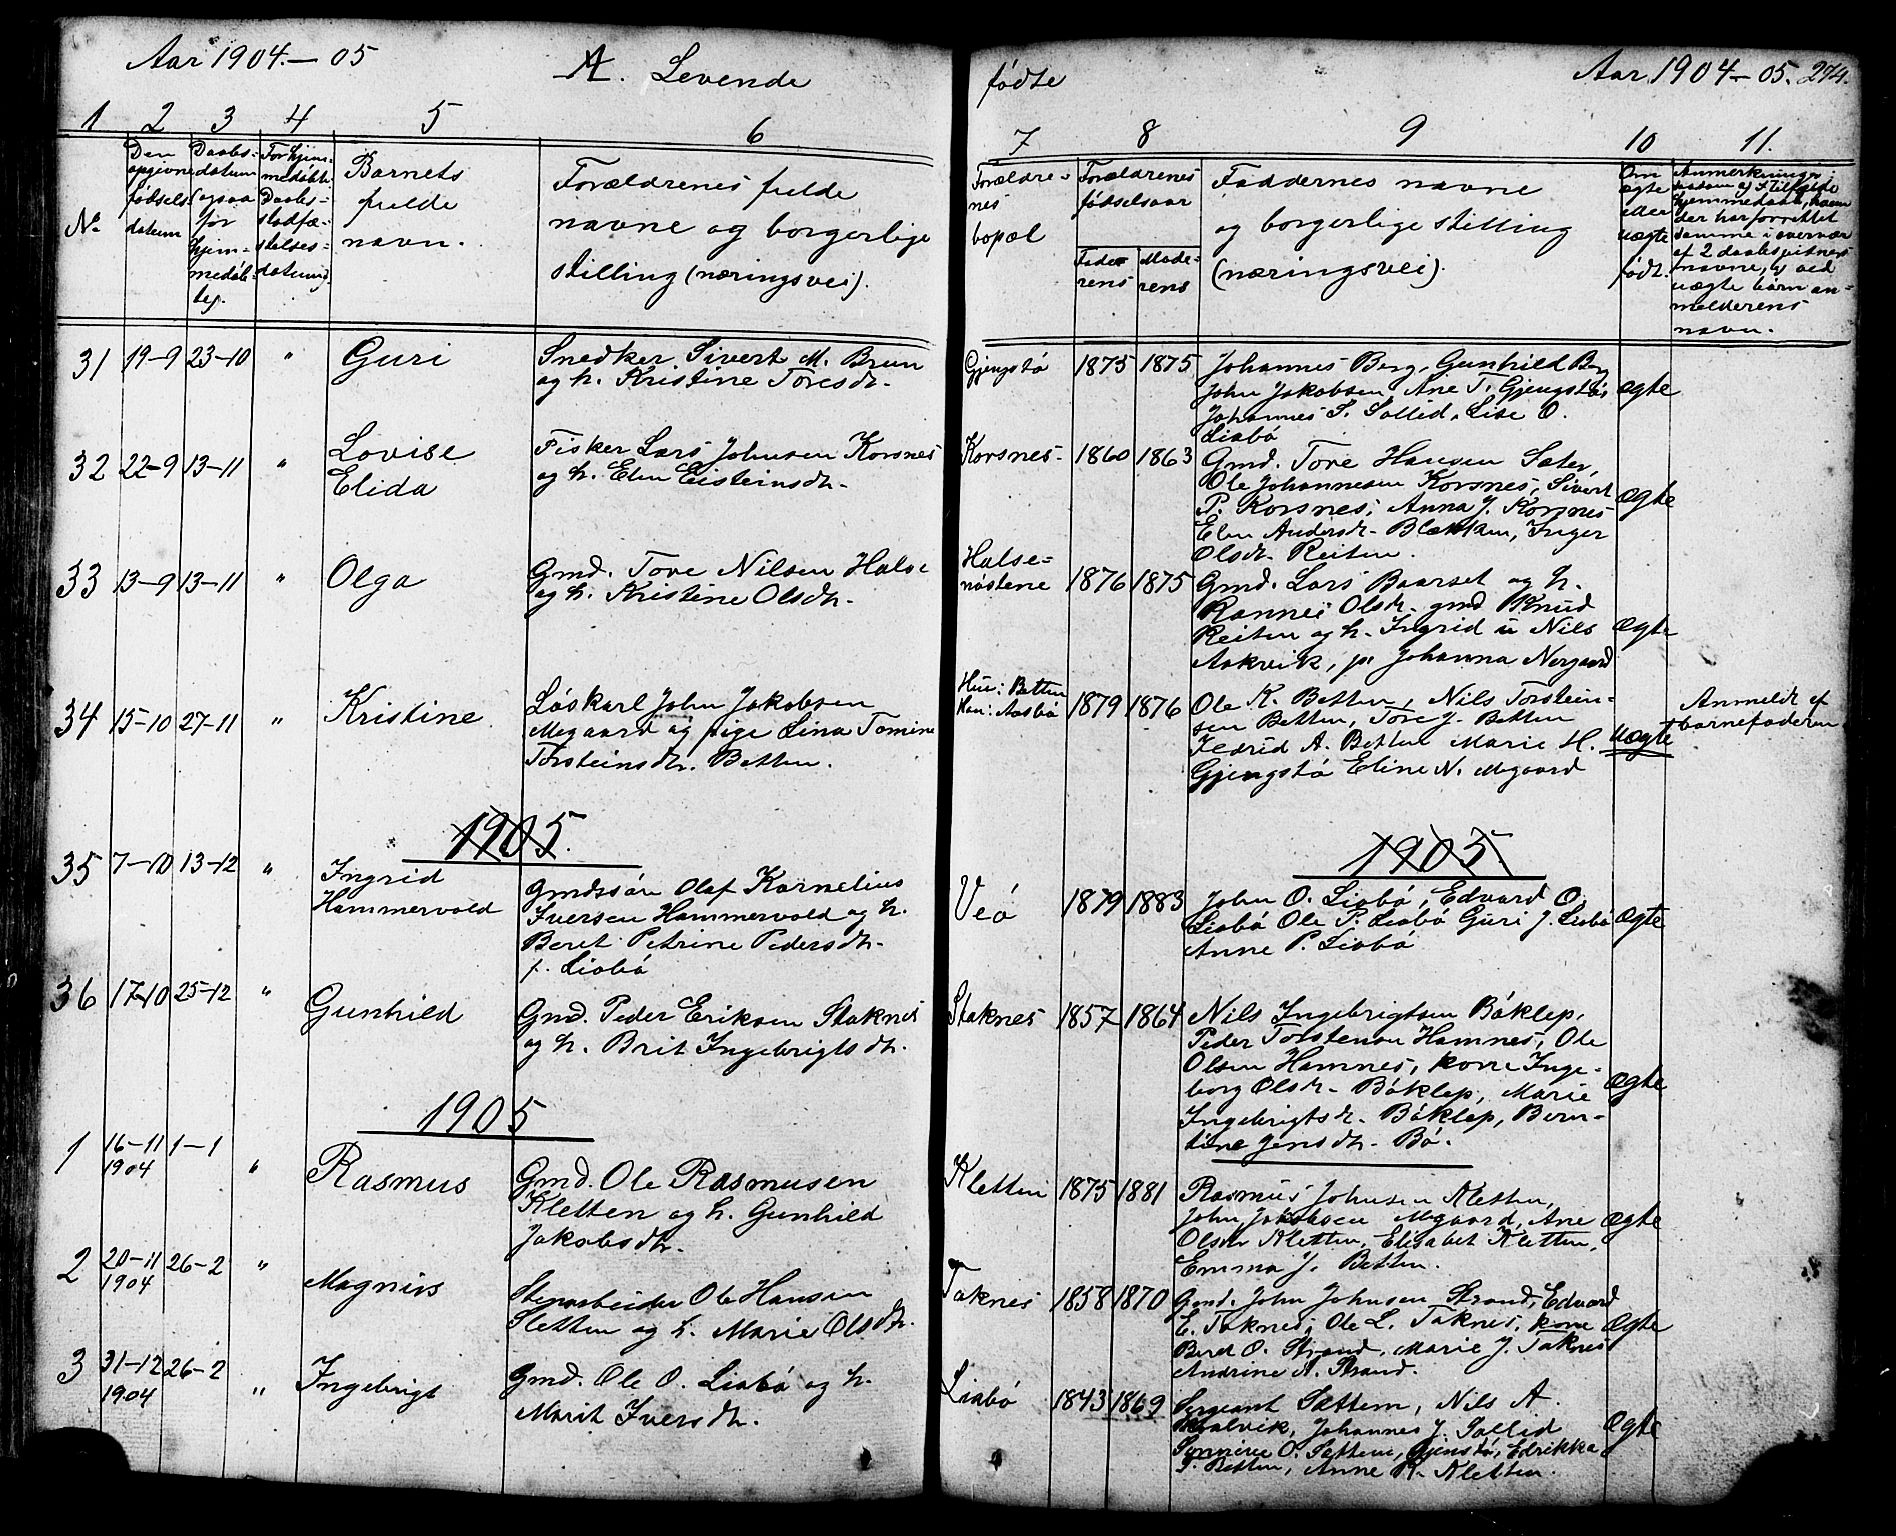 Aar 1904.— 05
A. Levende
fødte
Aar 1904— 05. 274.
1 2 3 4 5 6
7 8 9 10 11.
No
Den opgivne fødsels datum
Daabs-datum (ogsaa for hjem-medøb-te).
For hjem-medøbte Daabs-stadfæ-stelses-datum).
Barnets fulde navn.
Forældrenes fulde
navne og borgerlige
stilling (næringsvei).
Forældre-nes bopæl
Forældrenes fødselsaar
Fade-rens
Mode-rens
Faddernes navne
og borgerlige stilling
(næringsvei).
Om ægte eller uægte født.
Anmerkninger;
hjemmedaab, navn
der har forrettet
samme i overvær
af 2 daabsvitners
navne, og ved
uægte børn an-
melderens
navn.
31 19-9 23-10 " Guri
Snedker Sivert M. Bruun
og h. Kristine Toresdtr.
Gjengstø 1875 1875
Johannes Berg, Gunhild Berg
John Jakobsen, Ane T. Gjengstø,
Johannes S. Sollid, Lise O.
Liabø
ægte
32 22-9 13-11 " Lovise
Elida
Fisker Lars Johnsen Korsnes
og h. Elen Eisteinsdtr.
Korsnes 1860 1863
Gmd. Tore Hansen Sæter,
Ole Johannesen Korsnes, Sivert
P. Korsnes, Anna J. Korsnes
Elen Andersdtr. Blekkan, Inger
Olsdtr. Reiten.
ægte
33 13-9 13-11 " Olga
Gmd. Tore Nilsen Halse
og h. Kristine Olsdtr.
Halse-
nøstene 1876 1875
Gmd. Lars Baarset og h.
Rannei Olsdtr. gmd Knud
Reiten og h. Ingrid u Nils
Aakvik, p. Johanna Norgaard
Ægte
34 15-10 27-11 " Kristine
Løskarl John Jakobsen
Megaard og pige Lina Tomine
Torsteinsdtr. Betten.
Hun: Betten
Han: Aasbø 1879 1876
Ole K. Betten, Nils Torstein-
sen Betten, Tore J. Betten
A. Betten Marie H.
Gjengstø Eline N. Megaard
Uægte
Anmeldt af
barnefaderen
1905.
1905.
35 7-10 13-12 " Ingrid
Hammervold
Gmdssøn Olaf Kornelius
Iversen Hammervold og h.
Beret Petrine Pedersdtr.
f. Liabø
Veø 1879 1883
John O. Liabø, Edvard O.
Liabø Ole P. Liabø Guri J. Liabø
Anne P. Liabø
Ægte
36 17-10 25-12 " Gunhild
Gmd. Peder Eriksen Staknes
og h. Brit Ingebrigtsdtr.
Staknes 1857 1864
Nils Ingebrigtsen Bøklep,
Peder Torstensen Hamnes, Ole
Olsen Hamnes, kone Inge-
borg Olsdtr. Bøklep, Marie
Ingebrigtsdtr. Bøklep, Bern-
tine Jensdtr. Bø.
Ægte
1905
1 16-11 1904 1-1 " Rasmus
Gmd. Ole Rasmusen
Kletten og h. Gunhild
Jakobsdtr.
Kletten 1875 1881
Rasmus Johnsen Kletten,
John Jakobsen Megaard, Ane
Olsdtr Kletten, Elisabet Kletten,
Emma J. Betten.
Ægte
2 20-11 1904 26-2 " Magnus
Stenarbeider Ole Hansen
Sletten og h. Marie Olsdtr.
Taknes 1858 1870
Gmd. John Johnsen Strand, Edvard
E. Taknes, Ole L. Taknes, kone
Beret O. Strand, Marie J. Taknes
Andrine A. Strand.
Ægte
3 31-12 1904 26-2 " Ingebrigt
Gmd. Ole O. Liabø og h.
Marit Iversdtr.
Liabø 1843 1869
Sergeant Sættem, Nils A.
Kvalvik, Johannes J. Sollid
O. Sættem, Gjenstø, Edrikka
T. Betten, Anne R. Kletten.
Ægte